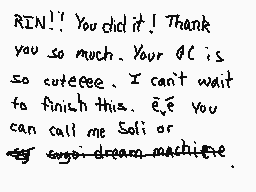 RIN!! You did it! Thank
you so much. Your OC is
so cuteeee. I can't wait
to finish this. ē.ē you
can call me Soli or
sugoi dream machiene.